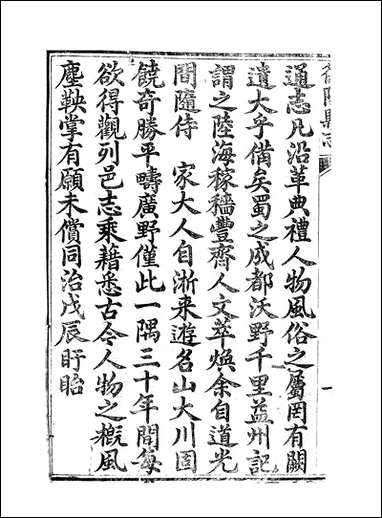 通志凡沿革典禮人物風俗之屬罔有闕
遺大乎備矣蜀之成都沃野千里益州記
謂之陸海稼穡豐齊人文萃煥余自道光
間隨侍　家大人自浙来遊名山大川固
饒奇勝平疇廣野僅此一隅三十年間每
欲得觀列邑志乘藉悉古今人物之概風
塵鞅掌有願未償同治戊辰盱眙